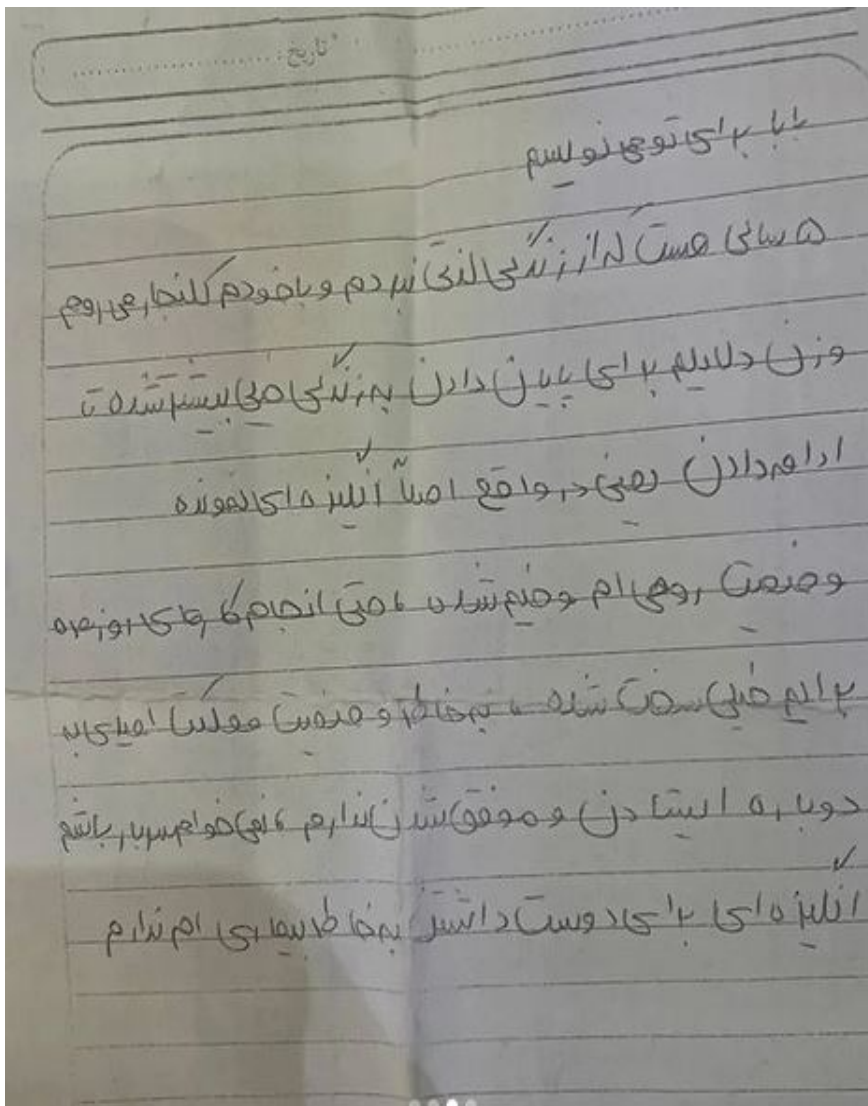 تاریخ:
بابا برای تو می نویسم
۵ سالی هست که از زندگی لذتی نبردم و با خودم کلنجار می روم
وزن دلایلم برای پایان دادن به زندگی خیلی بیشتر شده تا
ادامه دادن یعنی در واقع اصلاً انگیزه ای نمونده
وضعیت روحی ام وخیم شده، حتی انجام کارهای روزمره
برایم خیلی سخت شده، به خاطر وضعیت مملکت امیدی به
دوباره ایستادن و موفق شدن ندارم، نمی خواهم سربار باشم
انگیزه ای برای دوست داشتن به خاطر بیماری ام ندارم